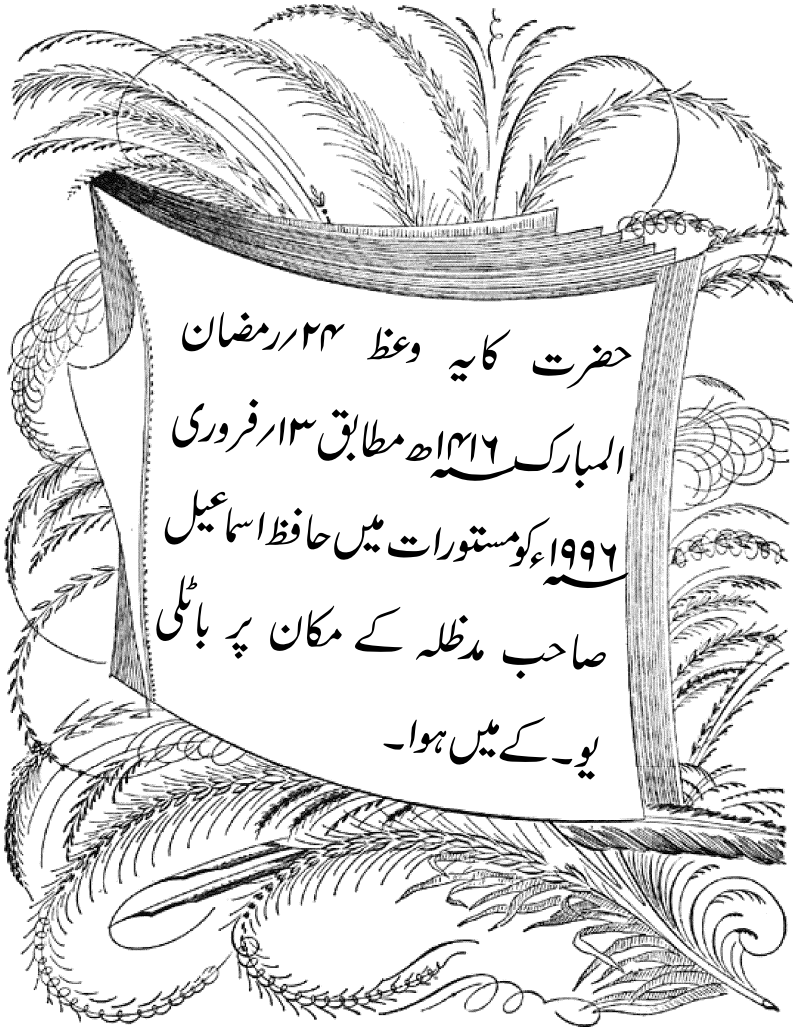 حضرت کا یہ وعظ ۲۴؍رمضان
المبارک ۱۴۱۶ھ مطابق ۱۳؍فروری
۱۹۹۶ء کو مستورات میں حافظ اسماعیل
صاحب مدظلہ کے مکان پر باٹلی
یو۔کے میں ہوا۔